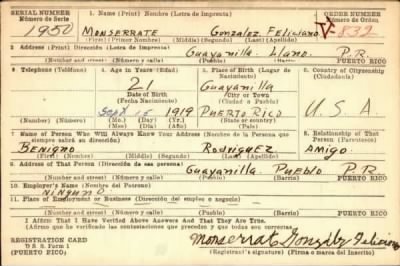 SERIAL NUMBER 1. NAME (Print) Nombre (Letra de Imprenta) ORDER NUMBER
Número de Serie Número de Orden
1950 MONSERRATE Gonzalez Feliciano V-832
(First) (Primer Nombre) (Middle) (Segundo) (Last) (Apellido)
2 Address (Print) Dirección (Letra de Imprenta)
Guayanilla Llano. P.R.
Number and street (Número y calle) PUERTO RICO
3 Telephone (Teléfono) 4. Age in Years (Edad) 5. Place of Birth (Lugar de Nacimiento) 6 Country of Citizenship (Ciudadanía)
21 Guayanilla
Date of Birth City or Town
(Fecha Nacimiento) (Ciudad o Pueblo)
Sept 15 1919 PUERTO RICO U.S.A
(Mo.) (Day) (Yr.) State or country
Number (Número) (Mes) (Día) (Año) (Estado o país)
7 Name of Person Who Will Always Know Your Address (Nombre de la Persona que siempre sabrá su dirección) 8. Relationship of That Person (Parentesco)
BENIGNO Rodriguez AMIGO.
First (Nombre) Middle (Segundo) Last (Apellido)
9. Address of That Person (Dirección de esa persona)
Guayanilla. Pueblo P R
Number and street (Número y calle) PUERTO RICO
10. Employer's Name (Nombre del Patrono)
NINGUNO
11. Place of Employment or Business (Dirección del empleo o negocio)
Number and street (Número y calle) PUERTO RICO
I Affirm That I Have Verified Above Answers And That They Are True.
(Afirmo que he verificado las contestaciones que preceden y que son ciertas.)
REGISTRATION CARD Monserrate González Feliciano
D S S Form 1
(Puerto Rico) (Registrant's signature) (Firma o marca del inscrito)